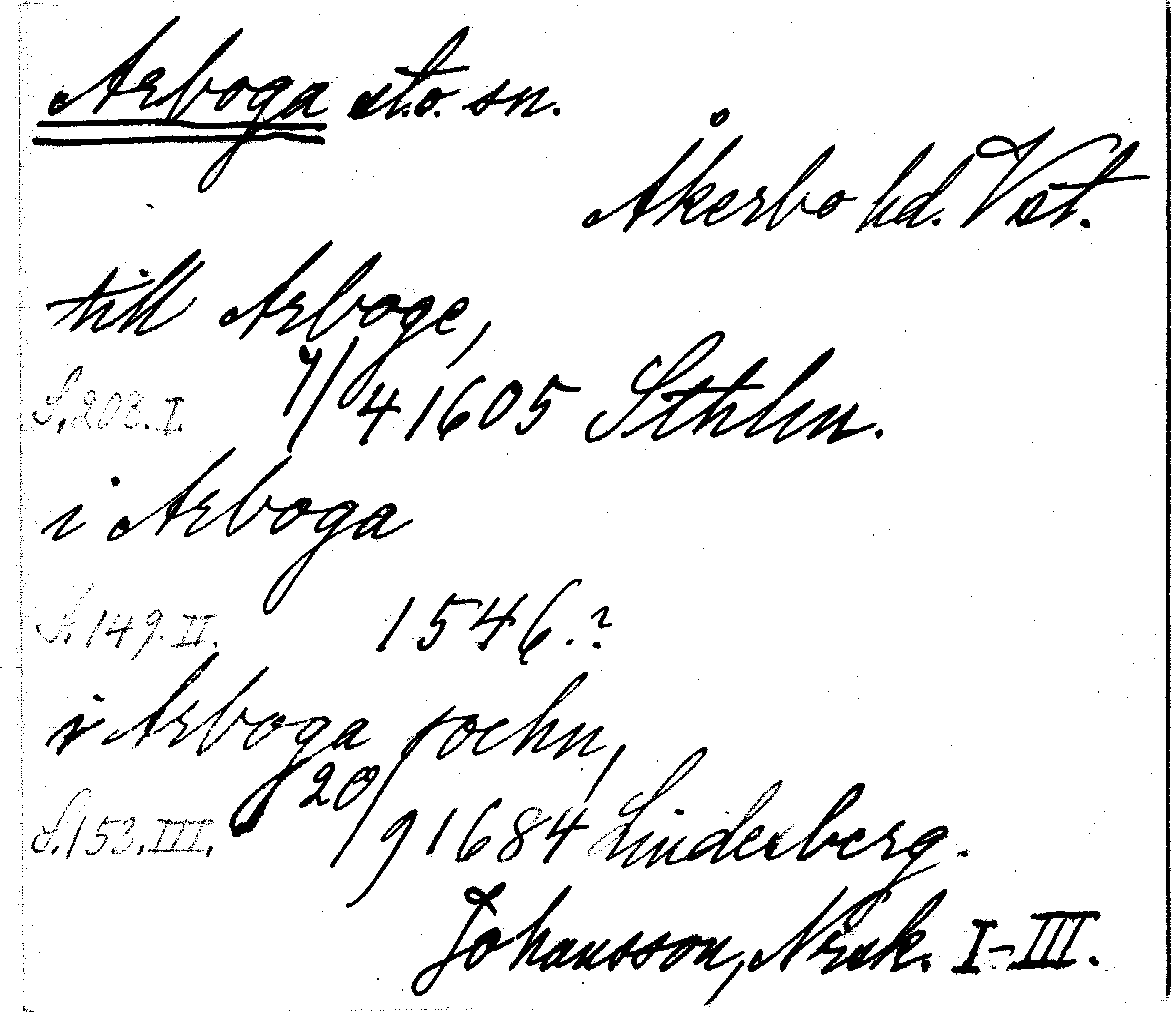 Arboga st.o. sn.
Åkerbo hd. Vst.
till Arboge,
S. 208. I. 7/4 1605 Sthlm.
i Arboga
S. 149. II. 1546.?
i Arboga sochn,
S. 153. III. 20/9 1684 Lindesberg.
Johansson, Nrsk. I-III.